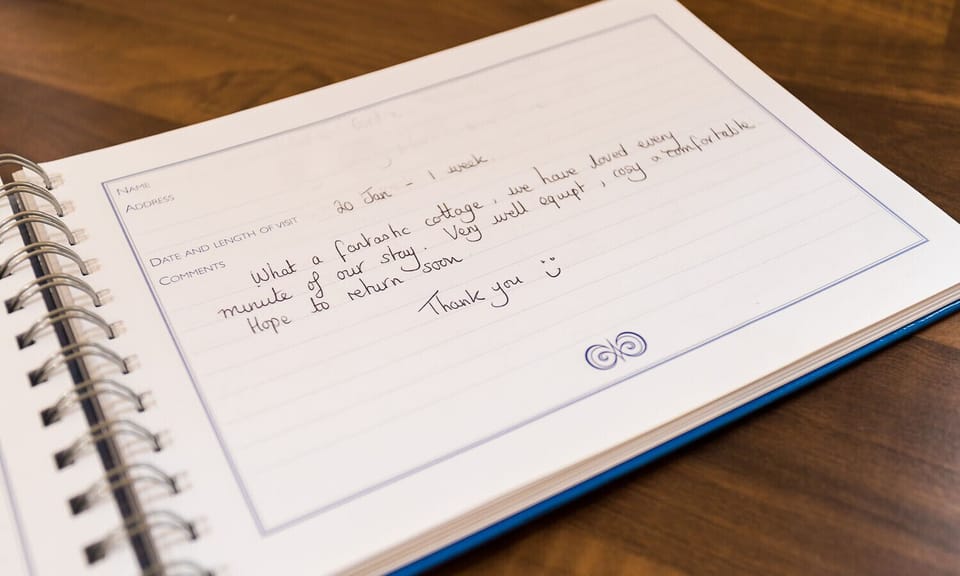 NAME
ADDRESS
DATE AND LENGTH OF VISIT 20 Jan - 1 week
COMMENTS
What a fantastic cottage, we have loved every
minute of our stay. Very well equipt, cosy & comfortable
Hope to return soon
Thank you :)